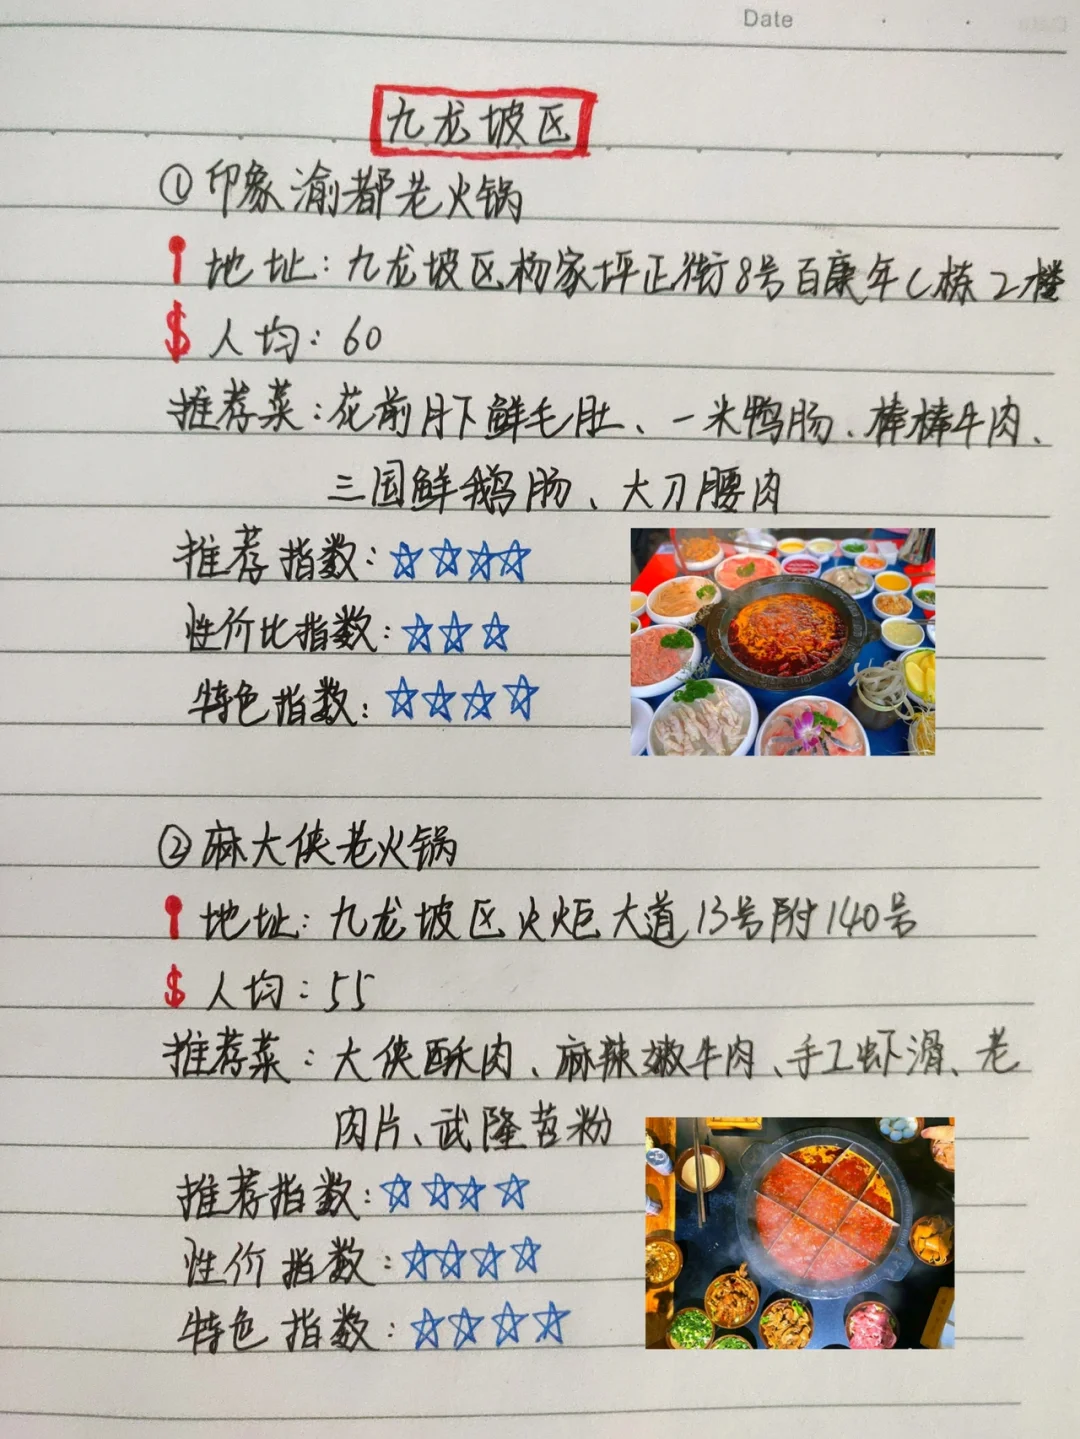 Date
九龙坡区
①印象渝都老火锅
地址：九龙坡区杨家坪正街8号百康年C栋2楼
$人均：60
推荐菜：花前月下鲜毛肚、一米鸭肠、棒棒牛肉、
三国鲜鹅肠、大刀腰肉
推荐指数：☆☆☆☆
性价比指数：☆☆☆
特色指数：☆☆☆☆
②麻大侠老火锅
地址：九龙坡区火炬大道13号附140号
$人均：55
推荐菜：大侠酥肉、麻辣嫩牛肉、手工虾滑、老
肉片、武隆苕粉
推荐指数：☆☆☆☆
性价指数：☆☆☆☆
特色指数：☆☆☆☆